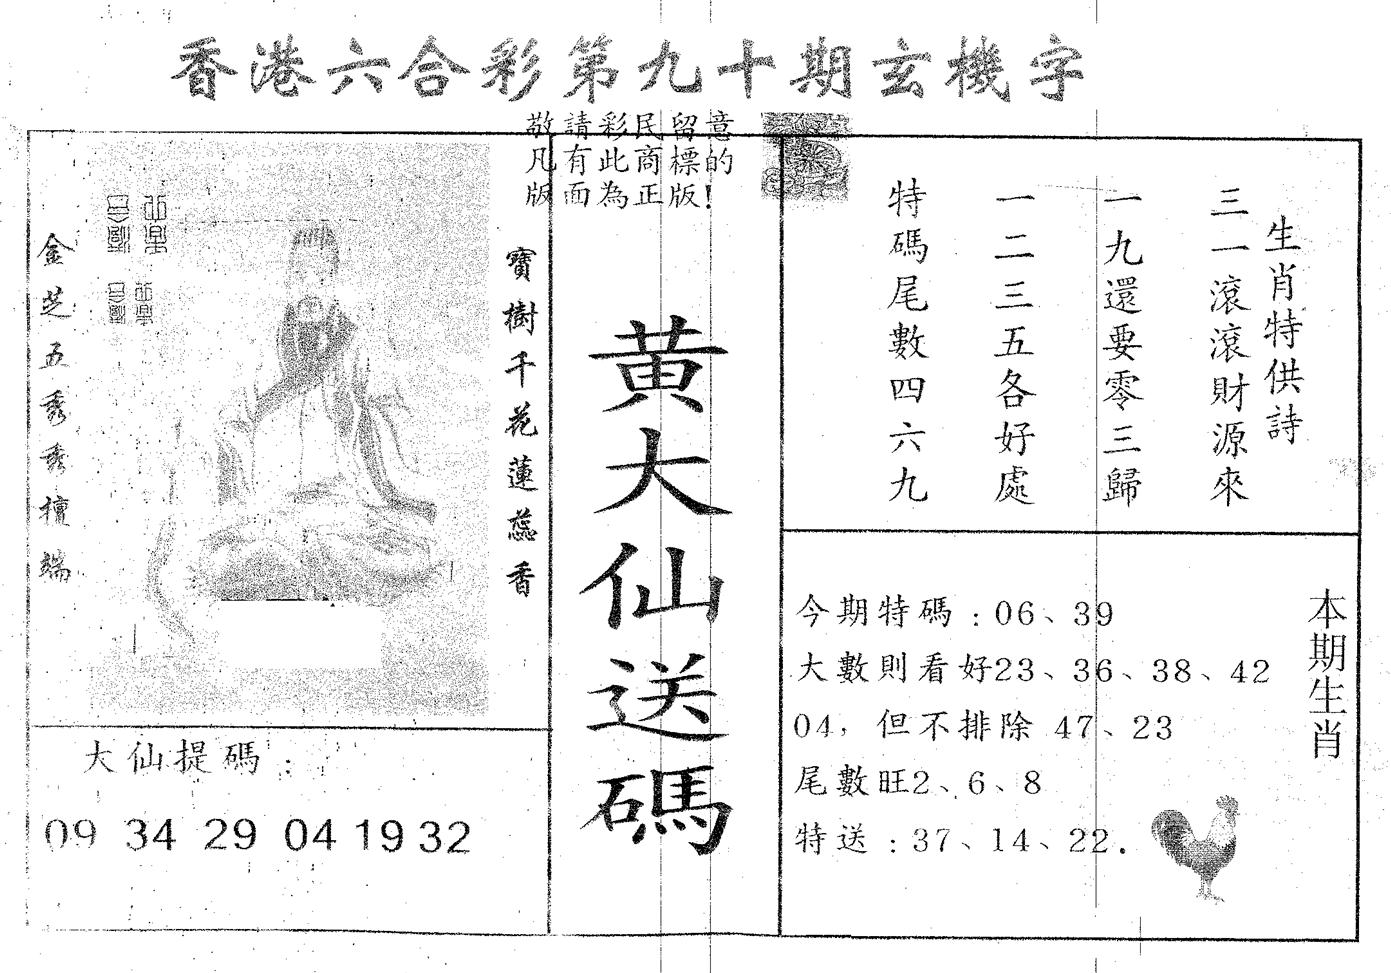 香港六合彩第九十期玄機字
敬請彩民留意
凡有此商標的
版面為正版!
生肖特供詩
三一滾滾財源來
一九還要零三歸
一二三五各好處
特碼尾數四六九
黃大仙送碼
寶樹千花蓮蕊香
金芝五秀秀檀端
大仙提碼:
09 34 29 04 19 32
本期生肖
今期特碼:06、39
大數則看好23、36、38、42
04，但不排除 47、23
尾數旺2、6、8
特送:37、14、22.